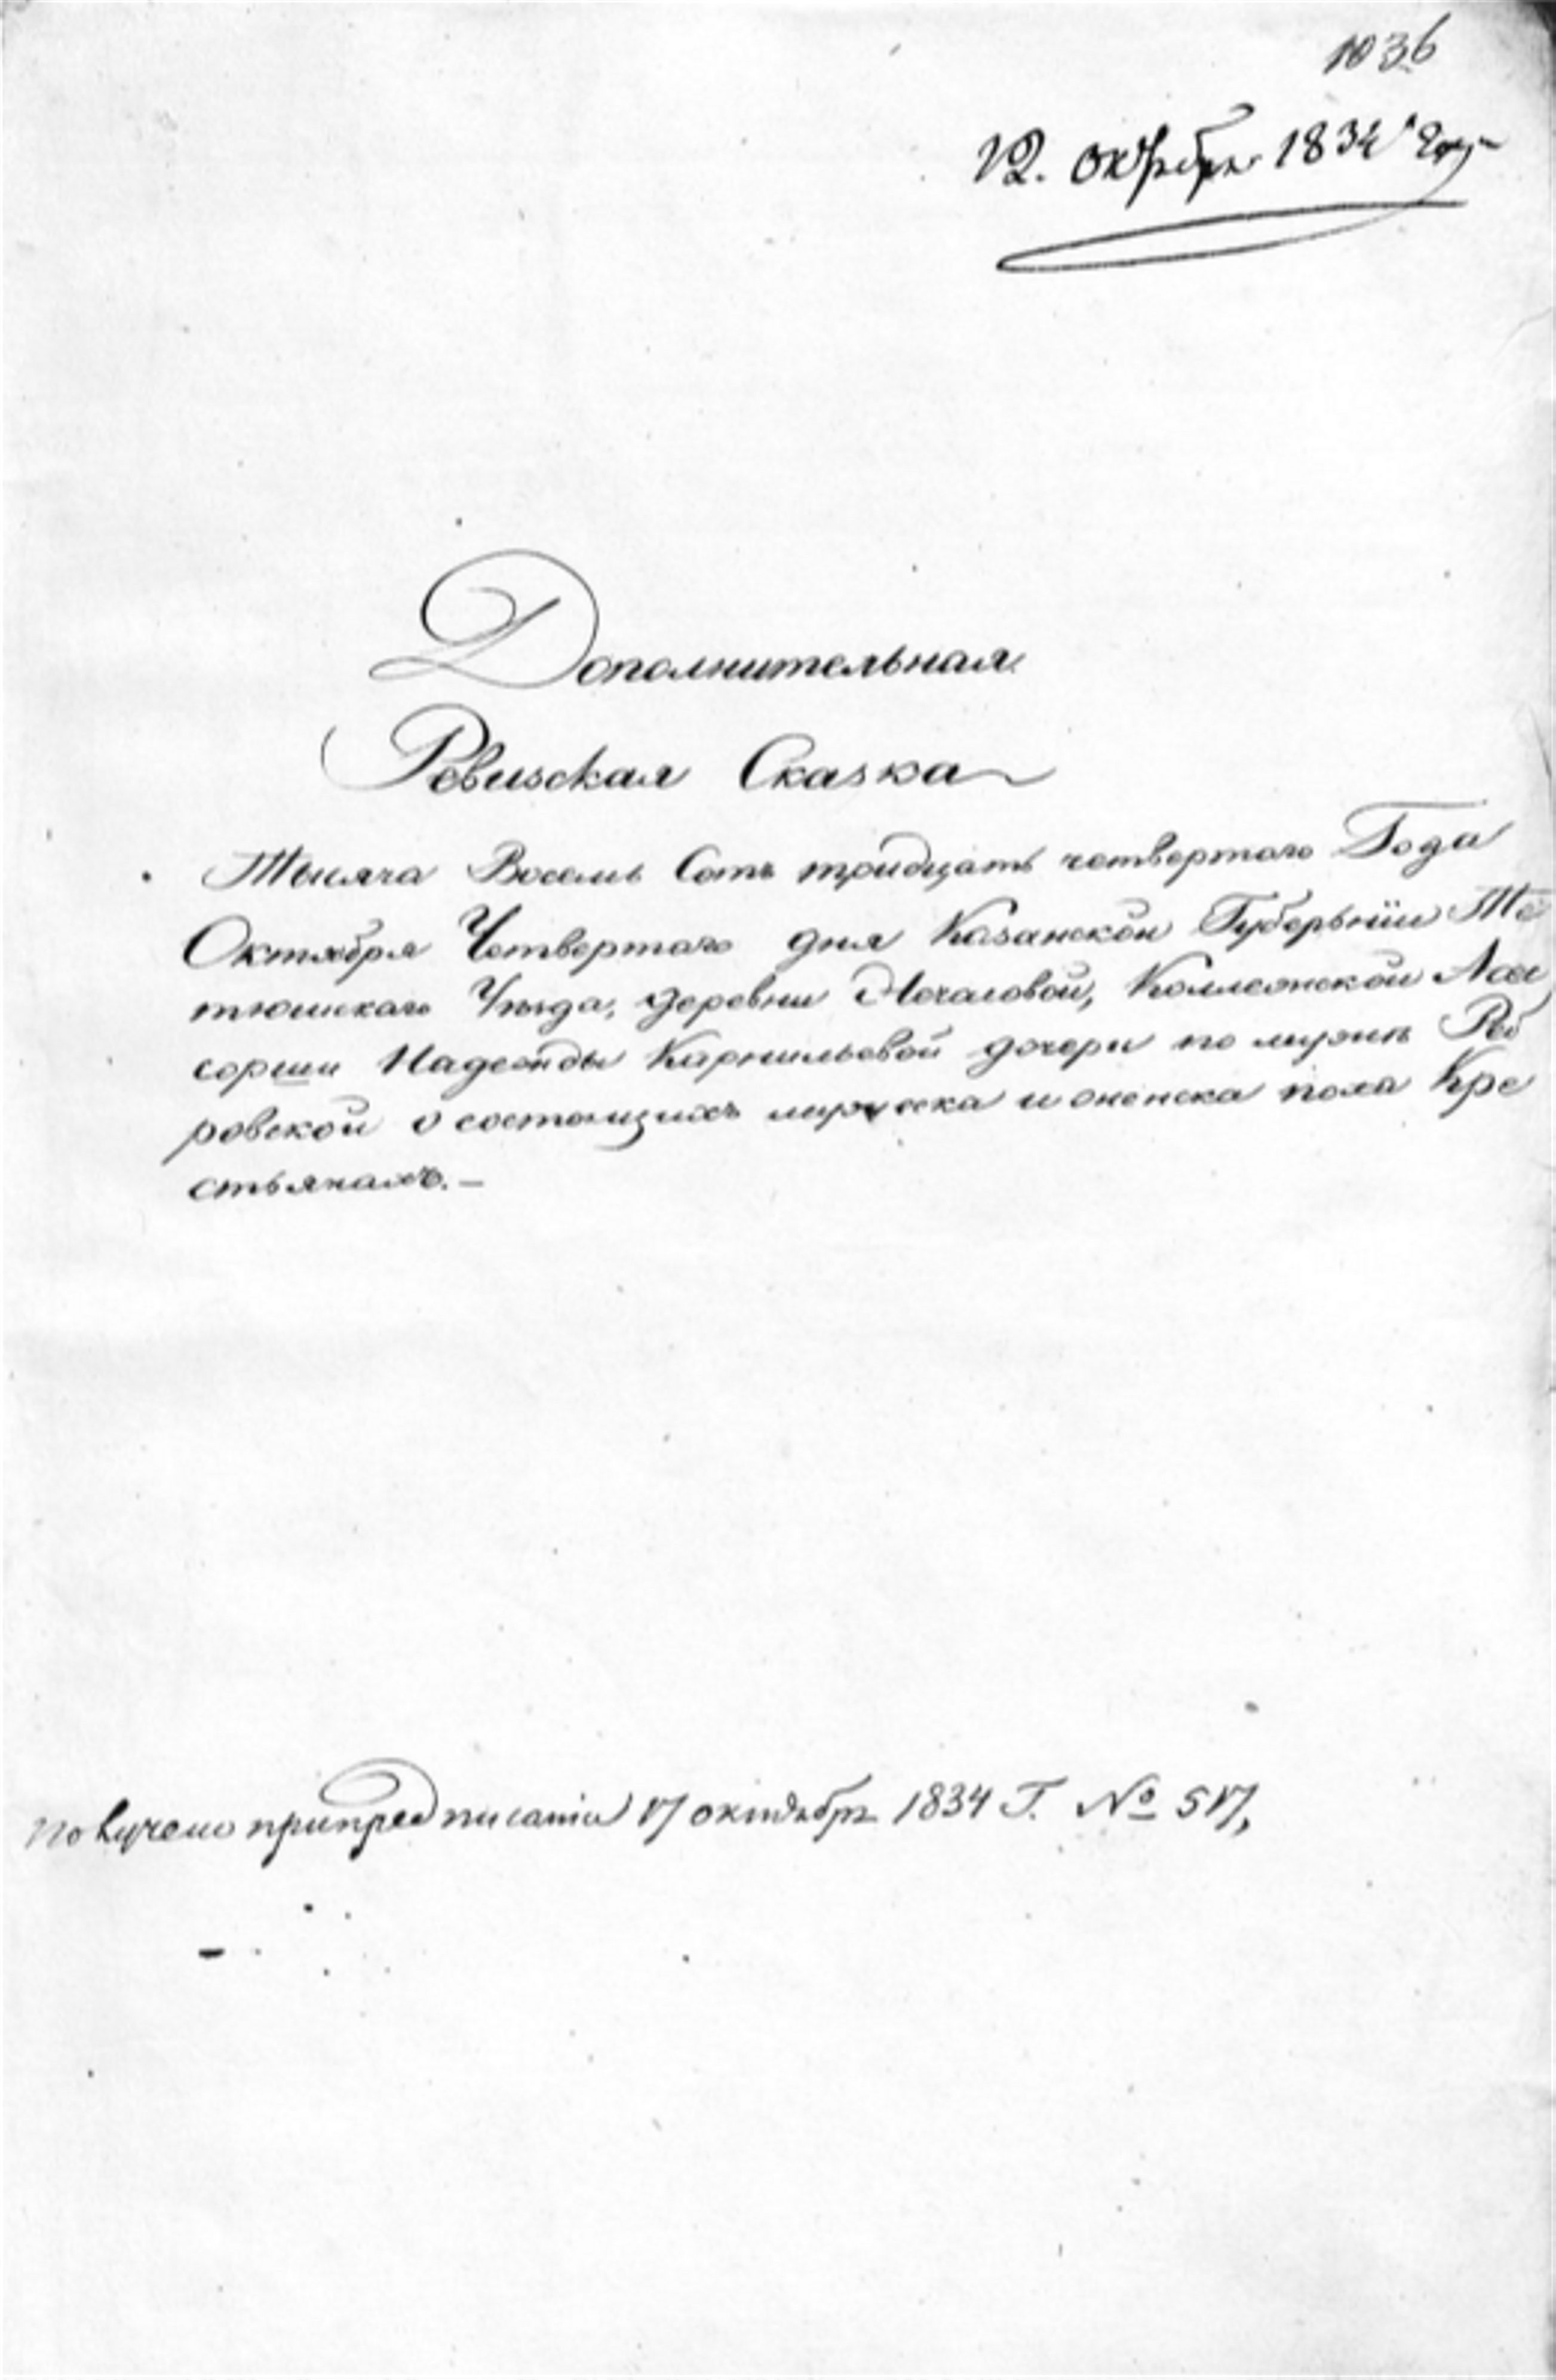 1036
12. октября 1834 года
Дополнительная
Ревизская Сказка
Тысяча Восемь Сотъ тридцать четвертаго Года
Октября Четвертаго дня Казанской Губернiи Те
тюшскаго Уѣзда, деревни Мочаловой, Коллежской Асе
сорши Надежды Карнильевой дочери по мужѣ Реб
ровской о состоящихъ мужеска и женска пола Кре
стьянахъ. –
получено при предписанiи 17 октября 1834 Г. № 517,